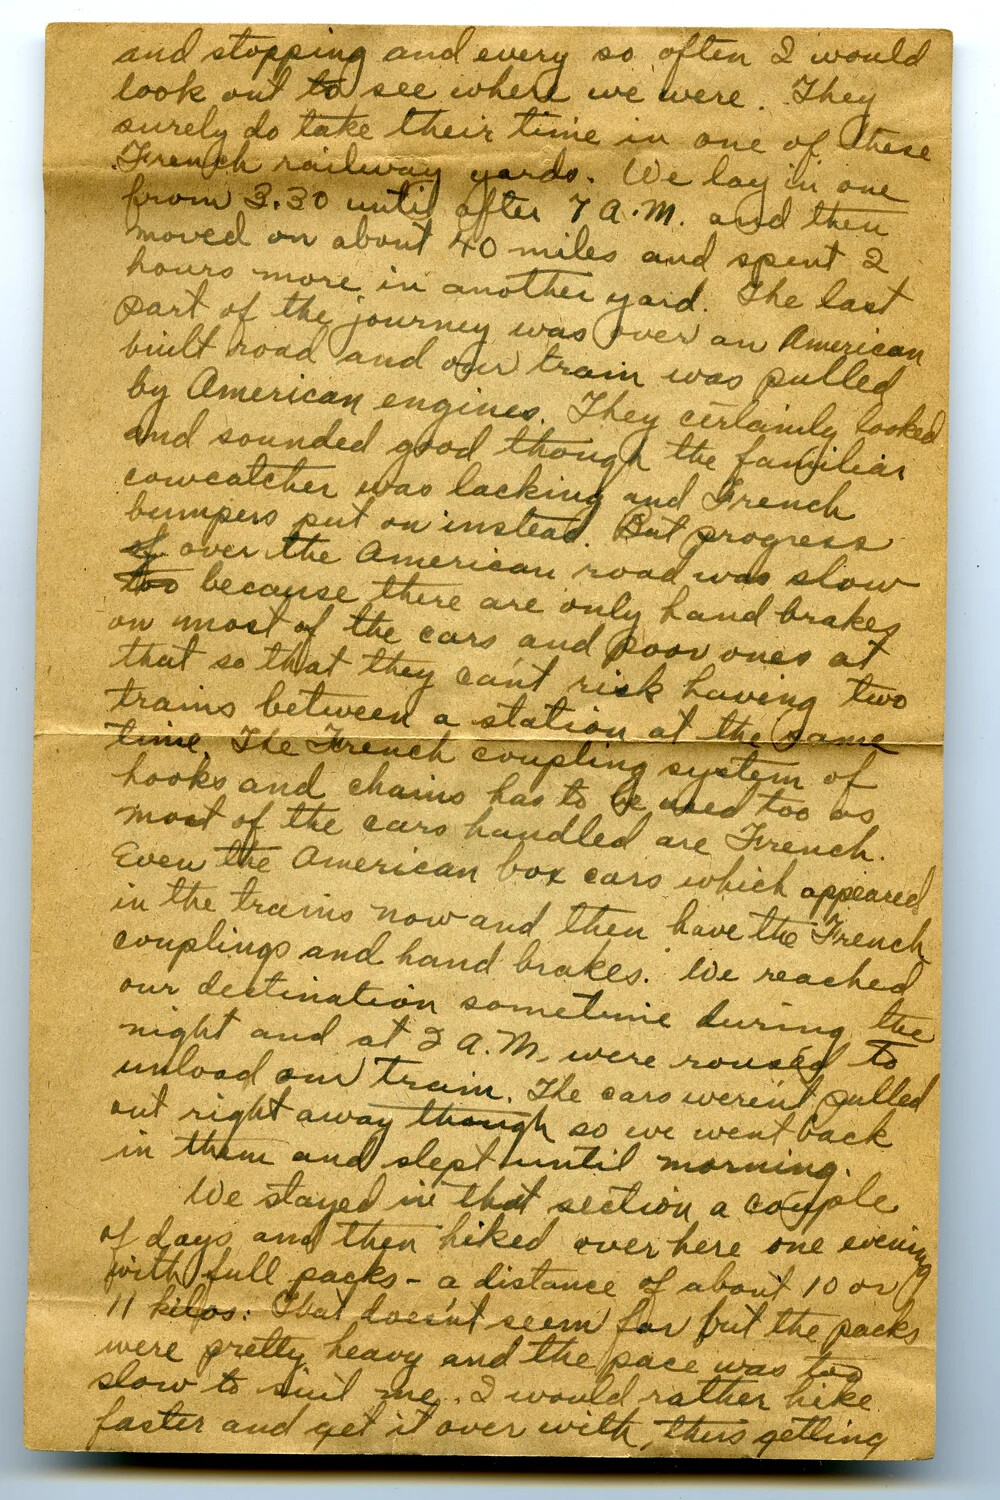 and stopping and every so often I would
look out to see where we were. They
surely do take their time in one of these
French railway yards. We lay in one
from 3.30 until after 7 A.M. and then
moved on about 40 miles and spent 2
hours more in another yard. The last
part of the journey was over an American
built road and our train was pulled
by American engines. They certainly looked
and sounded good though the familiar
cowcatcher was lacking and French
bumpers put on instead. But progress
of over the American road was slow
too because there are only hand brakes
on most of the cars and poor ones at
that so that they can't risk having two
trains between a station at the same
time. The French coupling system of
hooks and chains has to be used too as
most of the cars handled are French.
Even the American box cars which appeared
in the trains now and then have the French
couplings and hand brakes. We reached
our destination sometime during the
night and at 2 A.M. were roused to
unload our train. The cars weren't pulled
out right away though so we went back
in them and slept until morning.
We stayed in that section a couple
of days and then hiked over here one evening
with full packs - a distance of about 10 or
11 kilos. That doesn't seem far but the packs
were pretty heavy and the pace was too
slow to suit me. I would rather hike
faster and get it over with, thus getting